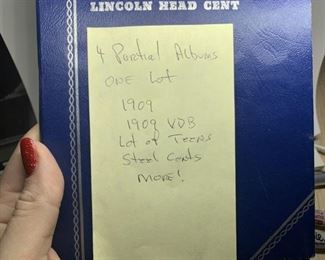 LINCOLN HEAD CENT
4 Partial Albums
ONE Lot
1909
1909 VDB
Lot of Teens
Steel Cents
MORE!